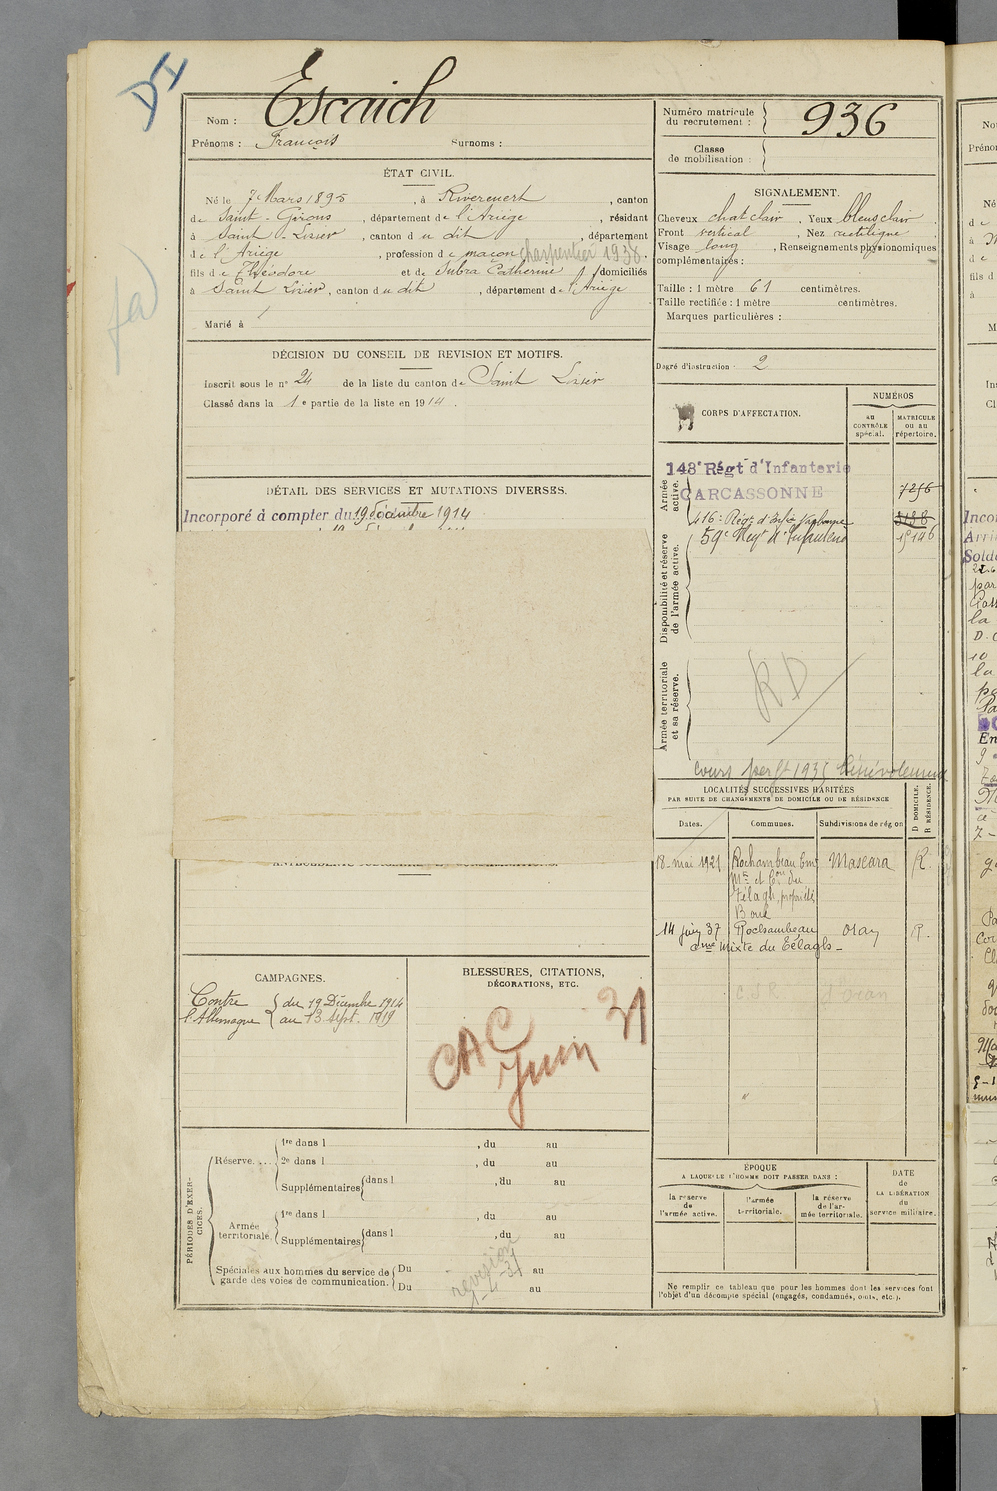 DI
Nom : Escaich
Prénoms : François Surnoms :
Numéro matricule du recrutement : 936
Classe de mobilisation :
ÉTAT CIVIL.
Né le 7 Mars 1895, à Riverenert, canton
de Saint-Girons, département de l'Ariège, résidant
à Saint-Lizier, canton du dit, département
de l'Ariège, profession de maçon charpentier 1938.
fils de Théodore et de Subra Catherine domiciliés
à Saint Lizier, canton du dit, département de l'Ariège
Marié à
SIGNALEMENT.
Cheveux chat clair, Yeux bleus clair.
Front vertical, Nez rectiligne.
Visage long, Renseignements physionomiques
complémentaires :
Taille : 1 mètre 61 centimètres.
Taille rectifiée : 1 mètre centimètres.
Marques particulières :
Degré d'instruction : 2
DÉCISION DU CONSEIL DE REVISION ET MOTIFS.
Inscrit sous le n° 24 de la liste du canton de Saint Lizier
Classé dans la 1e partie de la liste en 1914.
DÉTAIL DES SERVICES ET MUTATIONS DIVERSES.
Incorporé à compter du 19 décembre 1914
CORPS D'AFFECTATION.
NUMÉROS
au CONTRÔLE spécial.
MATRICULE ou au répertoire.
Armée active.
148e Régt d'Infanterie
CARCASSONNE
7256
416e Régt d'Inf
3188
59e Regt d'Infanterie
Disponibilité et réserve de l'armée active.
Armée territoriale et sa réserve.
RD
LOCALITÉS SUCCESSIVES HABITÉES
PAR SUITE DE CHANGEMENTS DE DOMICILE OU DE RÉSIDENCE
D DOMICILE.
R RÉSIDENCE.
Dates. Communes. Subdivisions de région
18 mai 1921 Rochambeau Cne Mascara R.
Télagh, propriété
14 juin 37 Rochambeau Oran R.
Cne Mixte du Télagh
CAMPAGNES.
Contre l'Allemagne
du 19 Décembre 1914
au 13 Sept. 1919
BLESSURES, CITATIONS,
DÉCORATIONS, ETC.
CAC
Juin 31
PÉRIODES D'EXERCICES.
Réserve....
1re dans l , du au
2e dans l , du au
Supplémentaires dans l , du au
Armée territoriale.
1re dans l , du au
Supplémentaires dans l , du au
Spéciales aux hommes du service de garde des voies de communication.
Du au
Du au
revision
ÉPOQUE
A LAQUELLE L'HOMME DOIT PASSER DANS :
la réserve de l'armée active.
l'armée territoriale.
la réserve de l'armée territoriale.
DATE de LA LIBÉRATION du service militaire.
Ne remplir ce tableau que pour les hommes dont les services font
l'objet d'un décompte spécial (engagés, condamnés, omis, etc.).